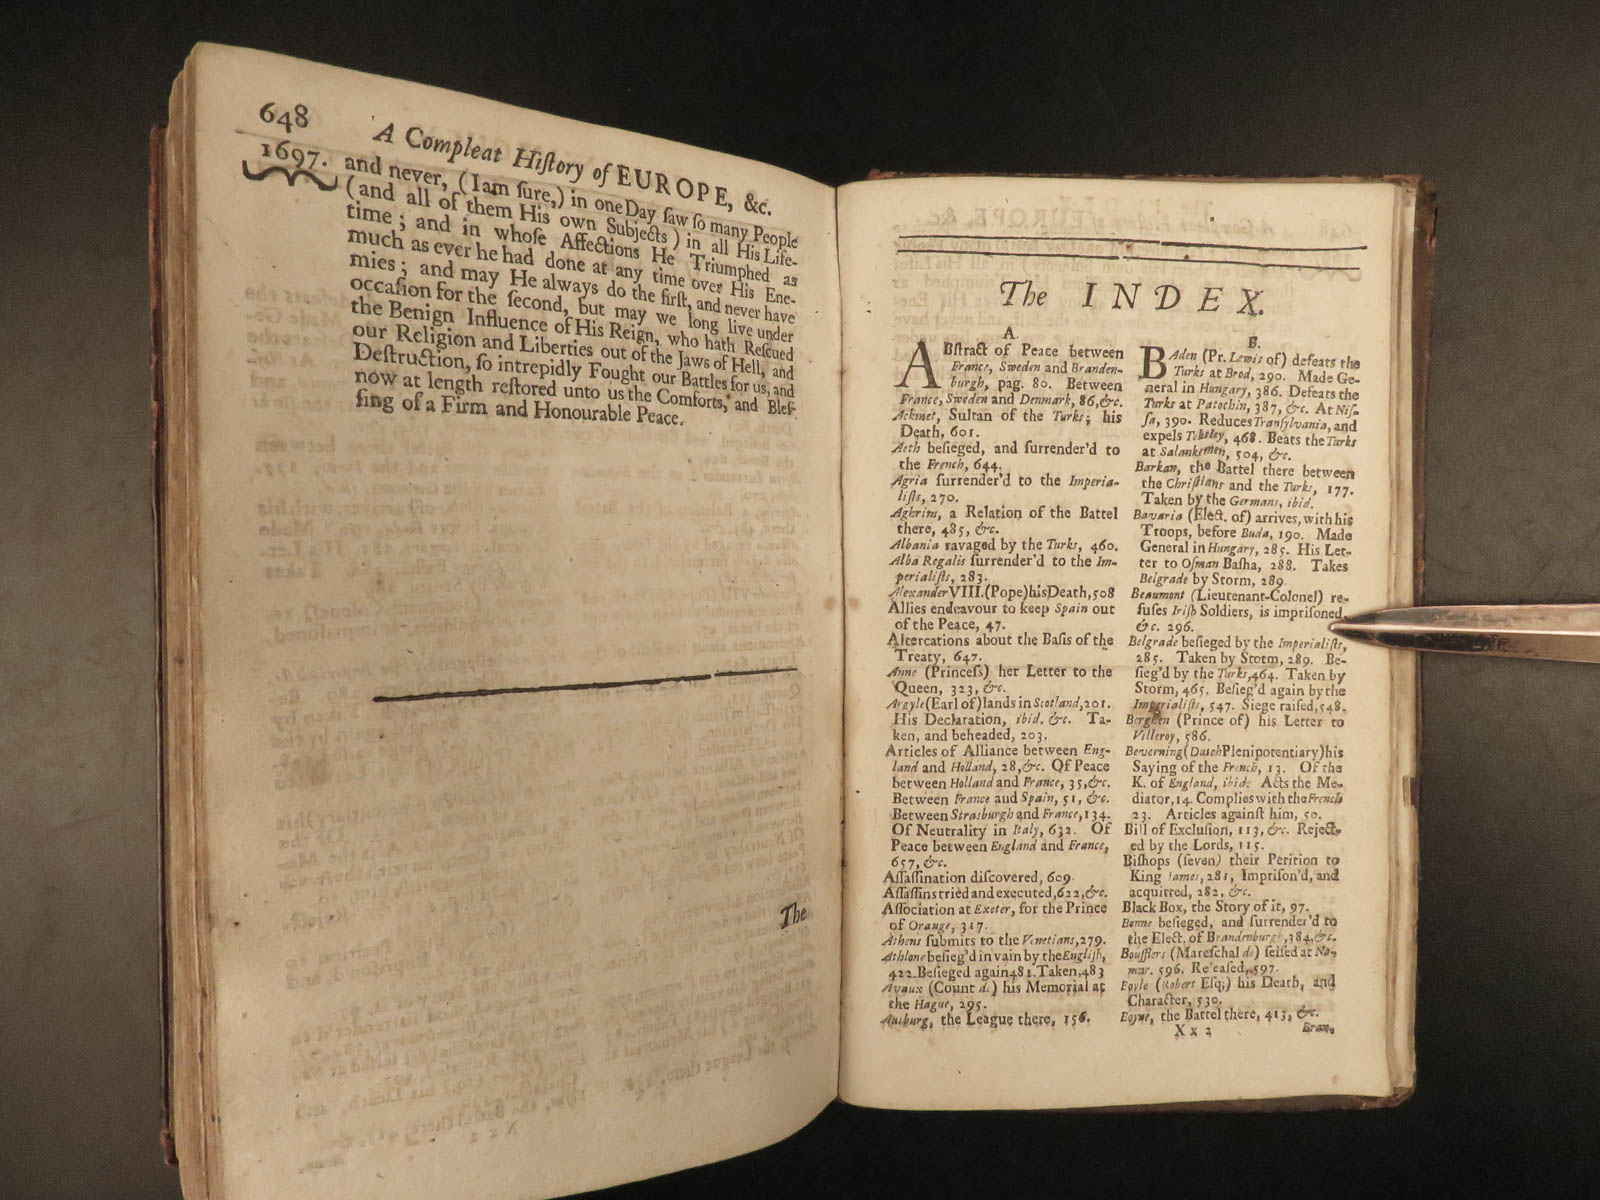 648
A Compleat Hiſtory of EUROPE, &c.
1697.
and never, (I am ſure,) in one Day ſaw ſo many People
(and all of them His own Subjects) in all His Life-
time; and in whoſe Affections He Triumphed as
much as ever he had done at any time over His Ene-
mies; and may He always do the firſt, and never have
occaſion for the ſecond, but may we long live under
the Benign Influence of His Reign, who hath Reſcued
our Religion and Liberties out of the Jaws of Hell, and
Deſtruction, ſo intrepidly Fought our Battles for us, and
now at length reſtored unto us the Comforts, and Bleſ-
ſing of a Firm and Honourable Peace.
The
The INDEX.
A.
ABſtract of Peace between
France, Sweden and Branden-
burgh, pag. 80. Between
France, Sweden and Denmark, 86, &c.
Ackmet, Sultan of the Turks; his
Death, 601.
Aeth beſieged, and ſurrender'd to
the French, 644.
Agria ſurrender'd to the Imperia-
liſts, 270.
Aghrim, a Relation of the Battel
there, 485, &c.
Albania ravaged by the Turks, 460.
Alba Regalis ſurrender'd to the Im-
perialiſts, 283.
Alexander VIII. (Pope) his Death, 508
Allies endeavour to keep Spain out
of the Peace, 47.
Altercations about the Baſis of the
Treaty, 647.
Anne (Princeſs) her Letter to the
Queen, 323, &c.
Argyle (Earl of) lands in Scotland, 201.
His Declaration, ibid. &c. Ta-
ken, and beheaded, 203.
Articles of Alliance between Eng-
land and Holland, 28, &c. Of Peace
between Holland and France, 35, &c.
Between France and Spain, 51, &c.
Between Strasburgh and France, 134.
Of Neutrality in Italy, 632. Of
Peace between England and France,
657, &c.
Aſſaſſination diſcovered, 609.
Aſſaſſins tried and executed, 622, &c.
Aſſociation at Exeter, for the Prince
of Orange, 317.
Athens ſubmits to the Venetians, 279.
Athlone beſieg'd in vain by the Engliſh,
422. Beſieged again 481. Taken, 483
Avaux (Count de) his Memorial at
the Hague, 295.
Ausburg, the League there, 156.
B.
BAden (Pr. Lewis of) defeats the
Turks at Brod, 290. Made Ge-
neral in Hungary, 386. Defeats the
Turks at Patochin, 387, &c. At Niſ-
ſa, 390. Reduces Tranſylvania, and
expels Tekeley, 468. Beats the Turks
at Salankemen, 504, &c.
Barkan, the Battel there between
the Chriſtians and the Turks, 177.
Taken by the Germans, ibid.
Bavaria (Elect. of) arrives, with his
Troops, before Buda, 190. Made
General in Hungary, 285. His Let-
ter to Oſman Baſha, 288. Takes
Belgrade by Storm, 289.
Beaumont (Lieutenant-Colonel) re-
fuſes Iriſh Soldiers, is impriſoned,
&c. 296.
Belgrade beſieged by the Imperialiſts,
285. Taken by Storm, 289. Be-
ſieg'd by the Turks, 464. Taken by
Storm, 465. Beſieg'd again by the
Imperialiſts, 547. Siege raiſed, 548.
Berghen (Prince of) his Letter to
Villeroy, 586.
Beverning (Dutch Plenipotentiary) his
Saying of the French, 13. Of the
K. of England, ibid. Acts the Me-
diator, 14. Complies with the French
23. Articles againſt him, 50.
Bill of Excluſion, 113, &c. Reject-
ed by the Lords, 115.
Biſhops (ſeven) their Petition to
King James, 281, Impriſon'd, and
acquitted, 282, &c.
Black Box, the Story of it, 97.
Bonne beſieged, and ſurrender'd to
the Elect. of Brandenburgh, 384, &c.
Boufflers (Mareſchal de) ſeiſed at Na-
mur. 596. Releaſed, 597.
Boyle (Robert Eſq;) his Death, and
Character, 530.
Boyne, the Battel there, 413, &c.
X x 2
Bran-